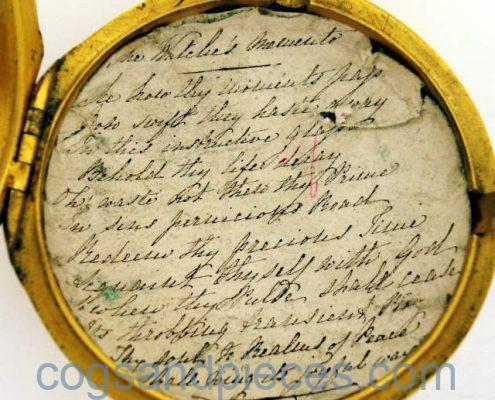 The Watche's Momento
how thy moments pass
How swift they haste away
In this instructive glass
Behold thy life decay
Oh! waste not then thy Prime
In sins pernicious Road
Redeem thy precious Time
Acquaint thyself with God
when thy Pulse shall cease
Its throbbing transient
Thy soul to Realms of Peace
wing its way
cogsandpieces.com